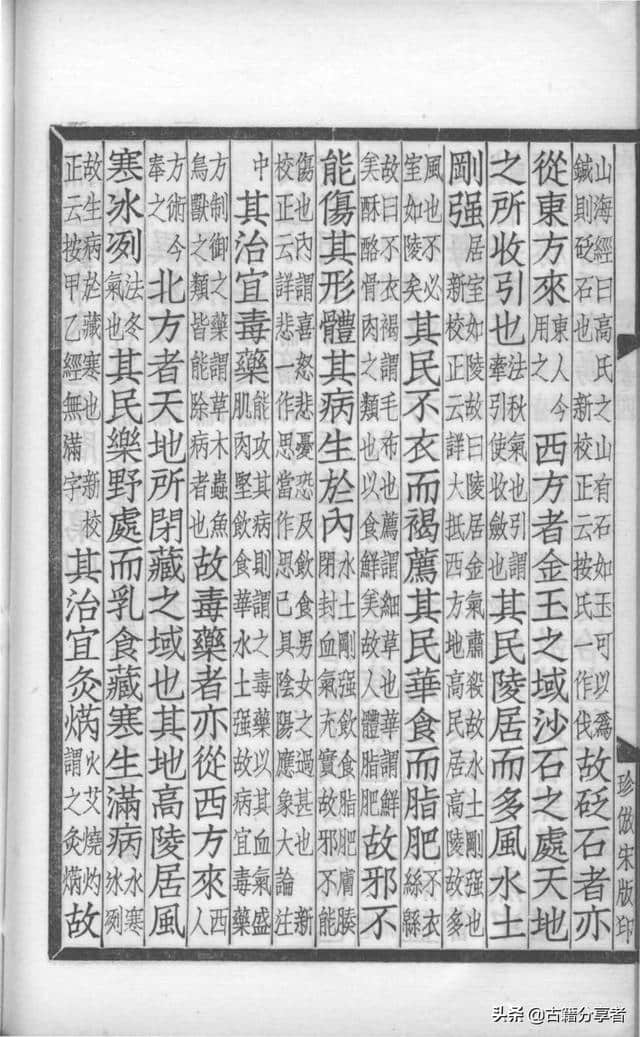 山海經曰高氏之山有石如玉可以爲鍼則砭石也新校正云按氏一作伐故砭石者亦
從東方來東人今用之西方者金玉之域沙石之處天地
之所收引也法秋氣也引謂牽引使收斂也其民陵居而多風水土
剛强居室如陵故曰陵居金氣肅殺故水土剛强也新校正云詳大抵西方地高民居高陵故多
風也不必室如陵矣其民不衣而褐薦其民華食而脂肥不衣絲緜
故曰不衣褐謂毛布也薦謂細草也華謂鮮美酥酪骨肉之類也以食鮮美故人體脂肥故邪不
能傷其形體其病生於內水土剛强飲食脂肥膚腠閉封血氣充實故邪不能
傷也內謂喜怒悲憂恐及飲食男女之過甚也新校正云詳悲一作思當作思已具陰陽應象大論注
中其治宜毒藥能攻其病則謂之毒藥以其血氣盛肌肉堅飲食華水土强故病宜毒藥
方制御之藥謂草木蟲魚鳥獸之類皆能除病者也故毒藥者亦從西方來西人
方術今奉之北方者天地所閉藏之域也其地高陵居風
寒冰冽法冬氣也其民樂野處而乳食藏寒生滿病水寒冰冽
故生病於藏寒也新校正云按甲乙經無滿字其治宜灸焫火艾燒灼謂之灸焫故
珍倣宋版印
头条 @古籍分享者